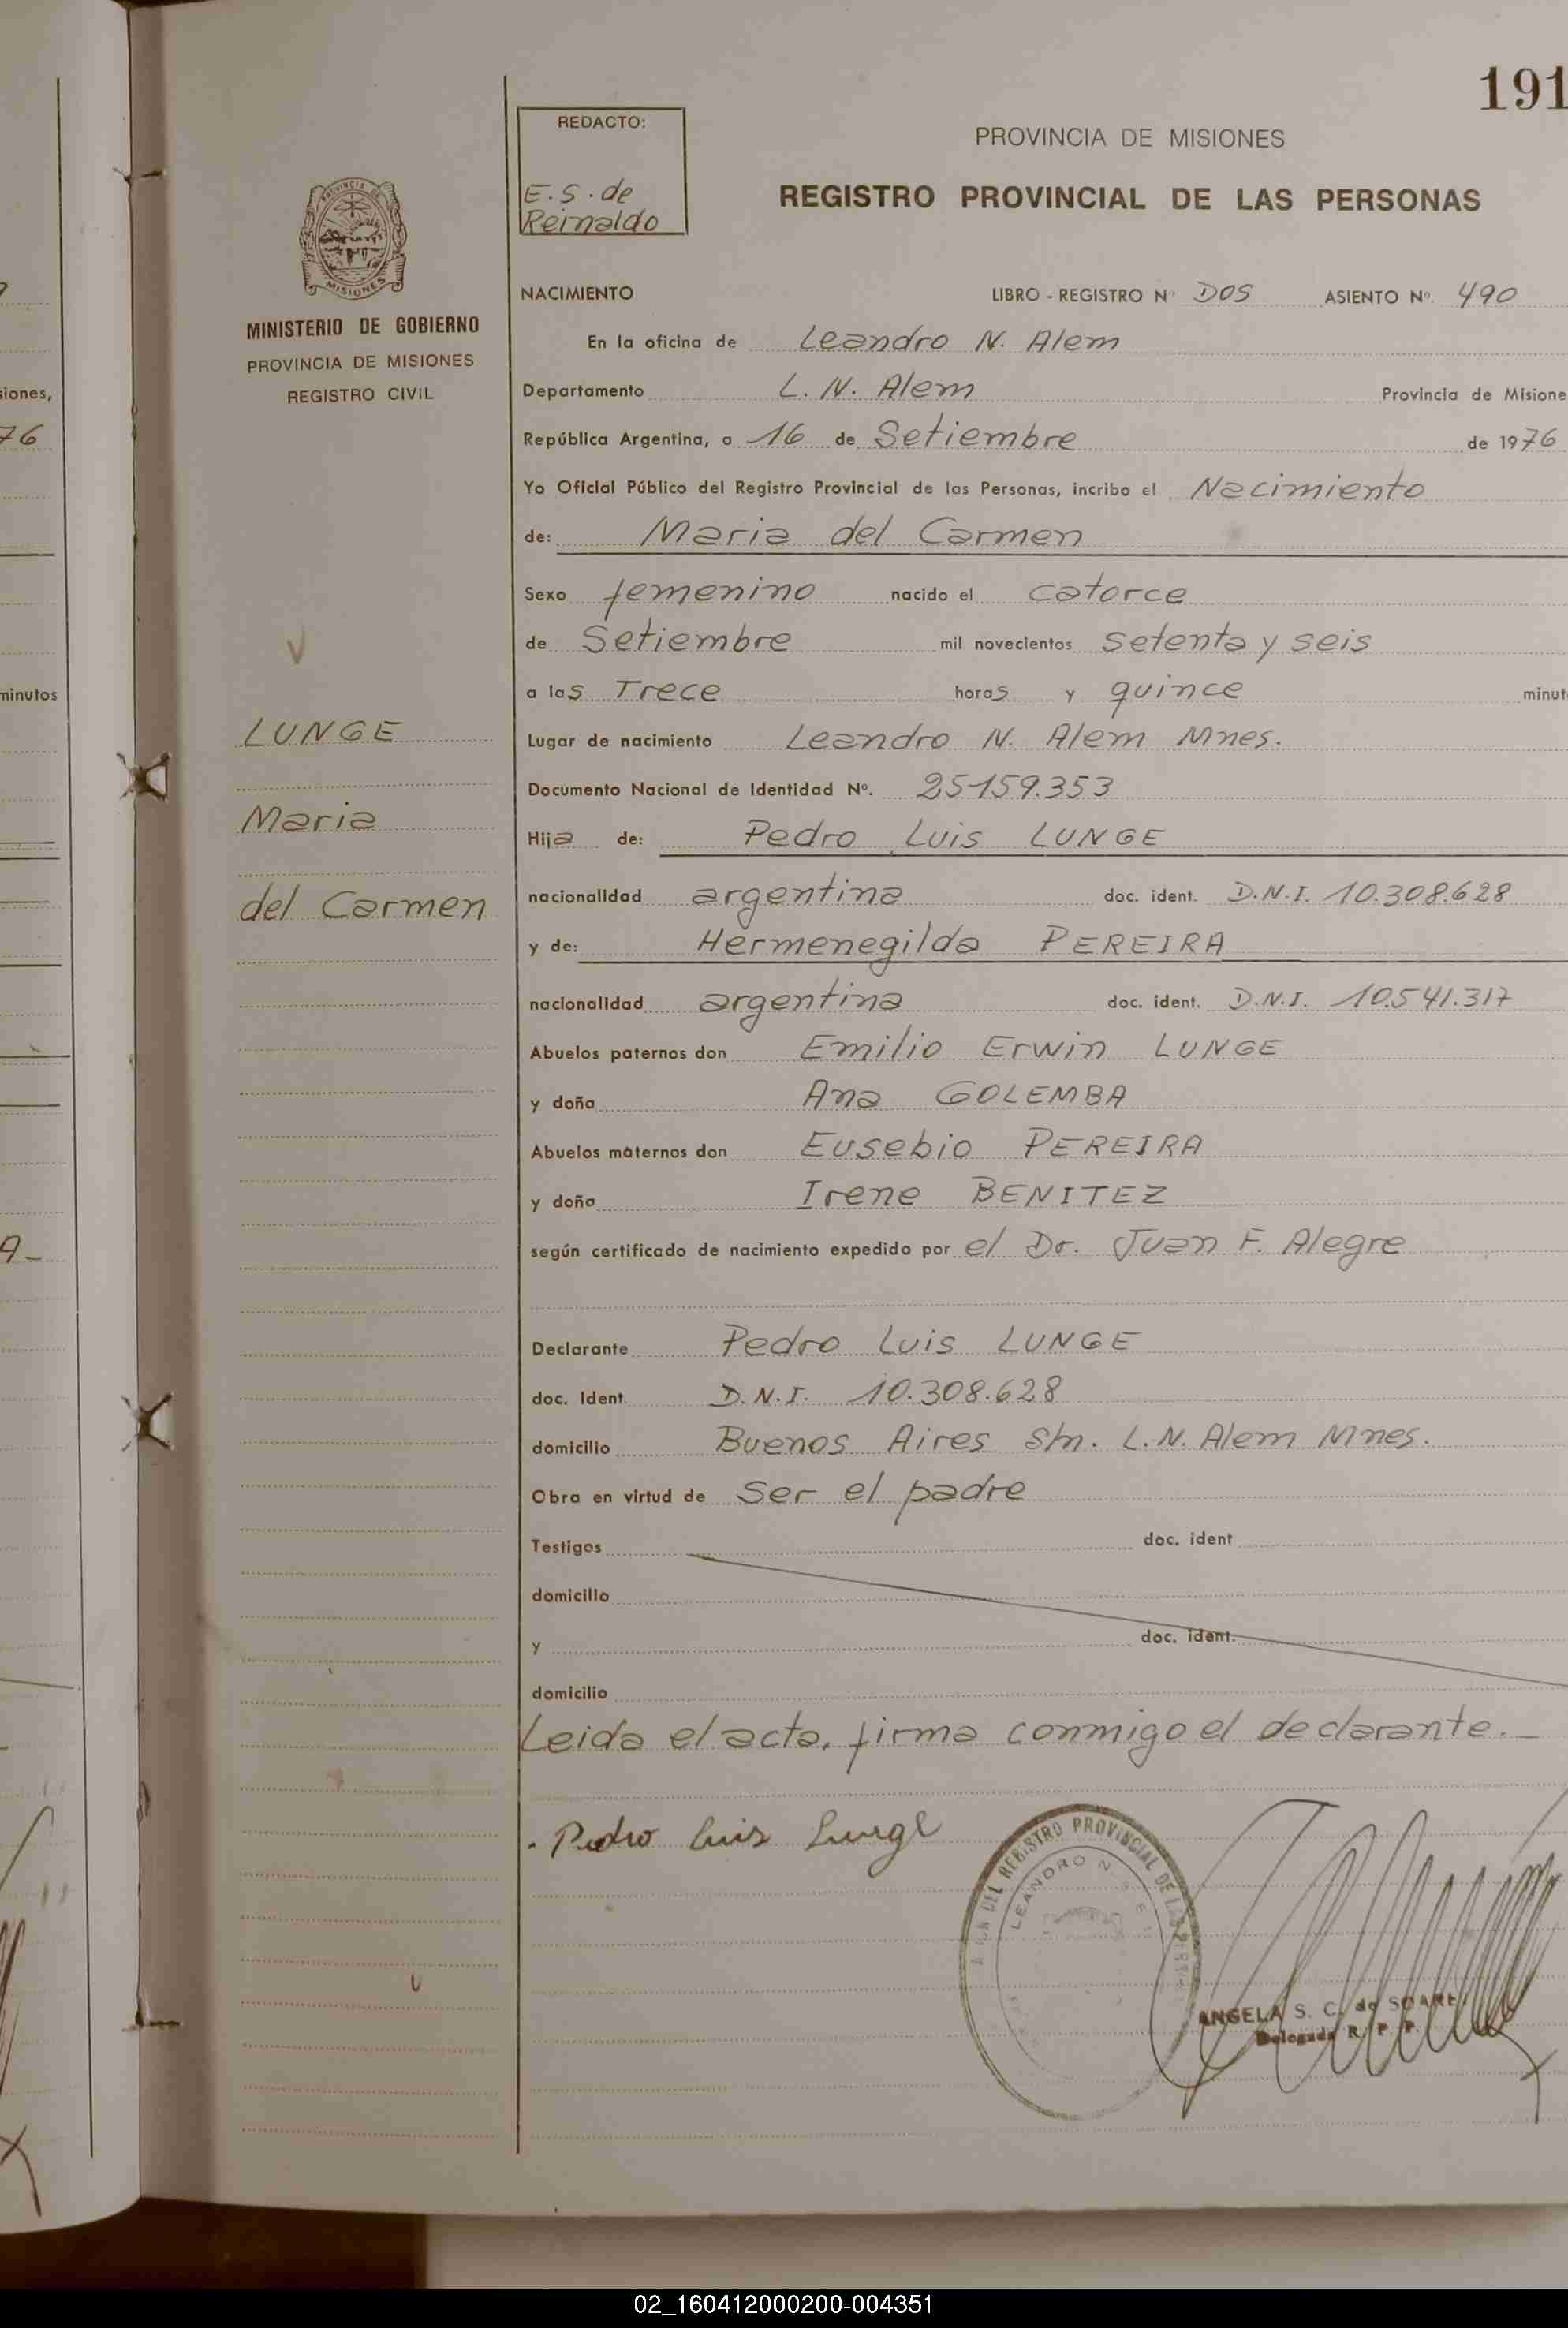 191
REDACTO:
E. S. de
Reinaldo
PROVINCIA DE MISIONES
REGISTRO PROVINCIAL DE LAS PERSONAS
PROVINCIA DE
MISIONES
MINISTERIO DE GOBIERNO
PROVINCIA DE MISIONES
REGISTRO CIVIL
NACIMIENTO LIBRO - REGISTRO Nº DOS ASIENTO Nº. 490
En la oficina de Leandro N. Alem
Departamento L. N. Alem Provincia de Misione
República Argentina, a 16 de Setiembre de 1976
Yo Oficial Público del Registro Provincial de las Personas, incribo el Nacimiento
de: Maria del Carmen
Sexo femenino nacido el catorce
de Setiembre mil novecientos setenta y seis
a las Trece horas y quince minut
Lugar de nacimiento Leandro N. Alem Mnes.
Documento Nacional de Identidad Nº. 25159.353
Hija de: Pedro Luis LUNGE
nacionalidad argentina doc. ident. D.N.I. 10.308.628
y de: Hermenegilda PEREIRA
nacionalidad argentina doc. ident. D.N.I. 10.541.317
Abuelos paternos don Emilio Erwin LUNGE
y doña Ana GOLEMBA
Abuelos maternos don Eusebio PEREIRA
y doña Irene BENITEZ
según certificado de nacimiento expedido por el Dr. Juan F. Alegre
Declarante Pedro Luis LUNGE
doc. Ident. D.N.I. 10.308.628
domicilio Buenos Aires s/n. L.N. Alem Mnes.
Obra en virtud de Ser el padre
Testigos doc. ident
domicilio
y doc. ident.
domicilio
Leida el acta, firma conmigo el declarante._
Pedro Luis Lunge
LUNGE
Maria
del Carmen
DEL REGISTRO PROVINCIAL DE LAS
LEANDRO N.
ANGELA S. C. de SOARE
Delegada R. P. P.
siones,
76
minutos
02_160412000200-004351